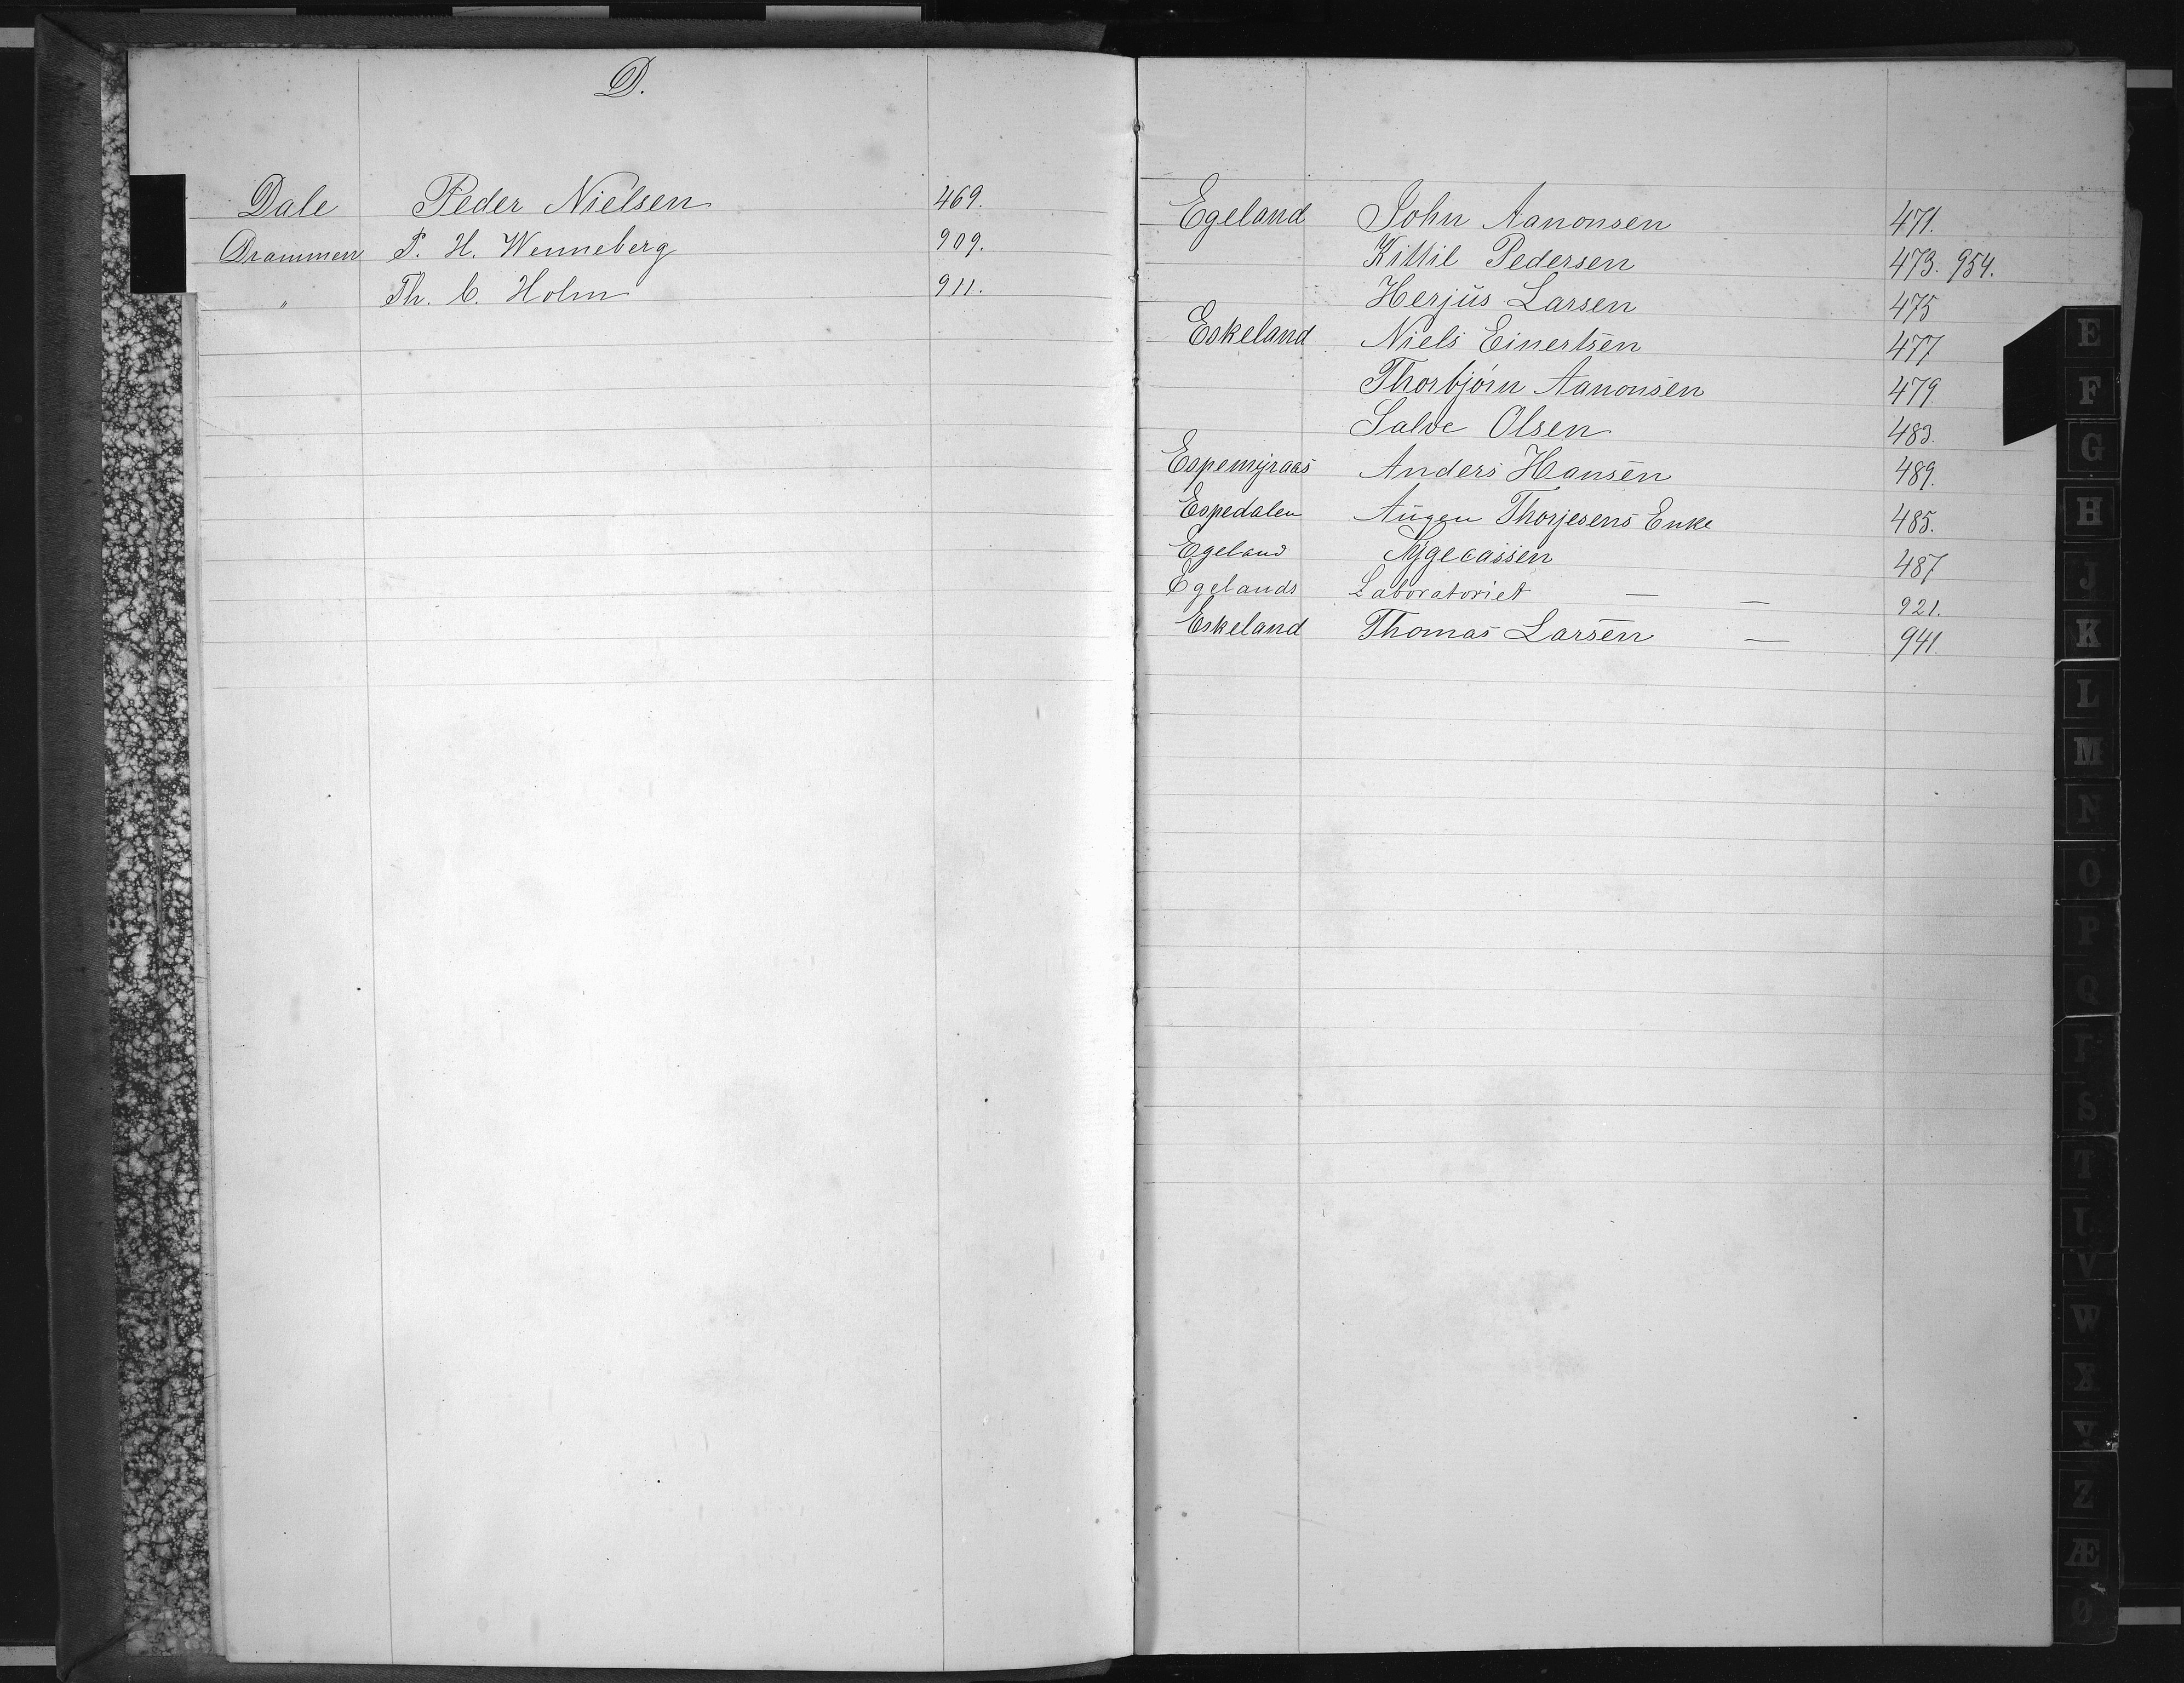 D.
Dale Peder Nielsen 469.
Drammen P. H. Wenneberg 909.
" Th. C. Holm 911.
Egeland John Aanonsen 471.
Kittil Pedersen 473. 954.
Herjus Larsen 475
Eskeland Niels Einertsen 477
Thorbjørn Aanonsen 479
Salve Olsen 483.
Anders Hansen 489.
Espedalen Augen Thorjesens Enke 485.
Egeland Byggecassen 487
Egelands Laboratoriet — — 921.
Eskeland Thomas Larsen — 941.
E
F
G
H
J
K
L
M
N
O
P
Q
R
S
T
U
V
W
X
Y
Z
Æ
Ø